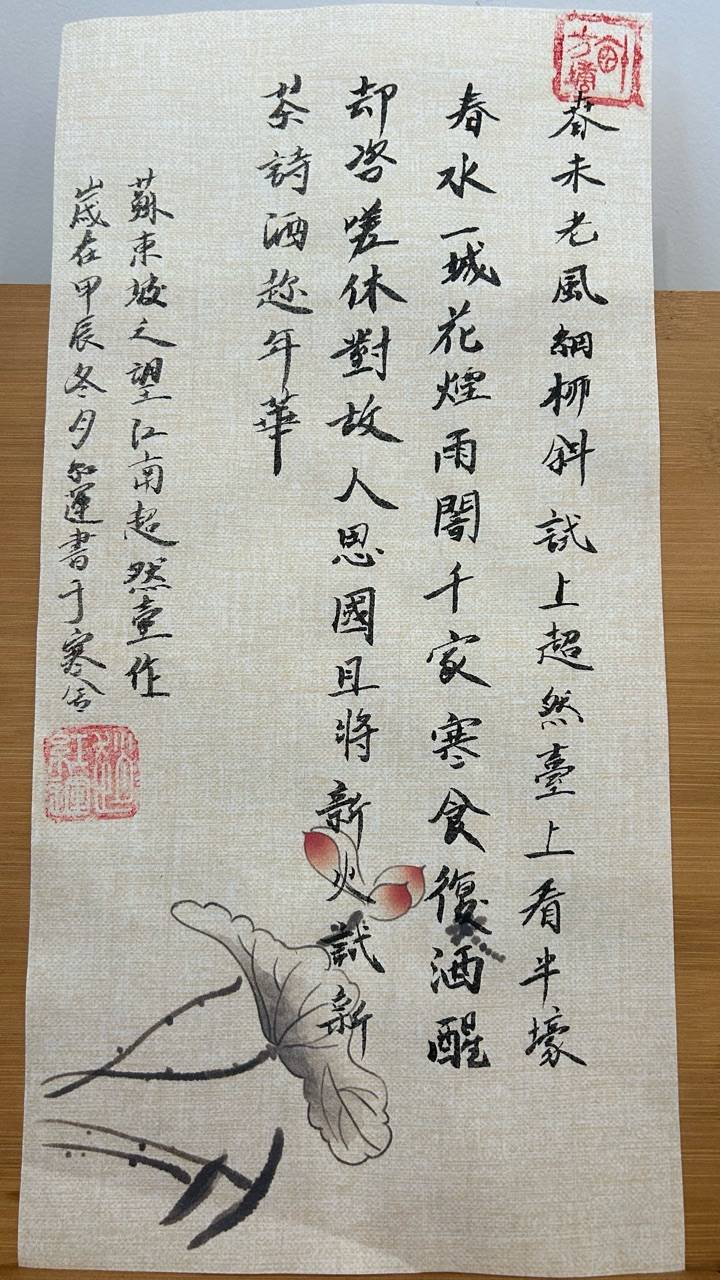 春未老風細柳斜試上超然臺上看半壕
春水一城花煙雨闇千家寒食復酒醒
却咨嗟休對故人思國且將新火試新
茶詩酒趁年華
蘇東坡之望江南超然臺作
歲在甲辰冬夕紅運書于寒舍